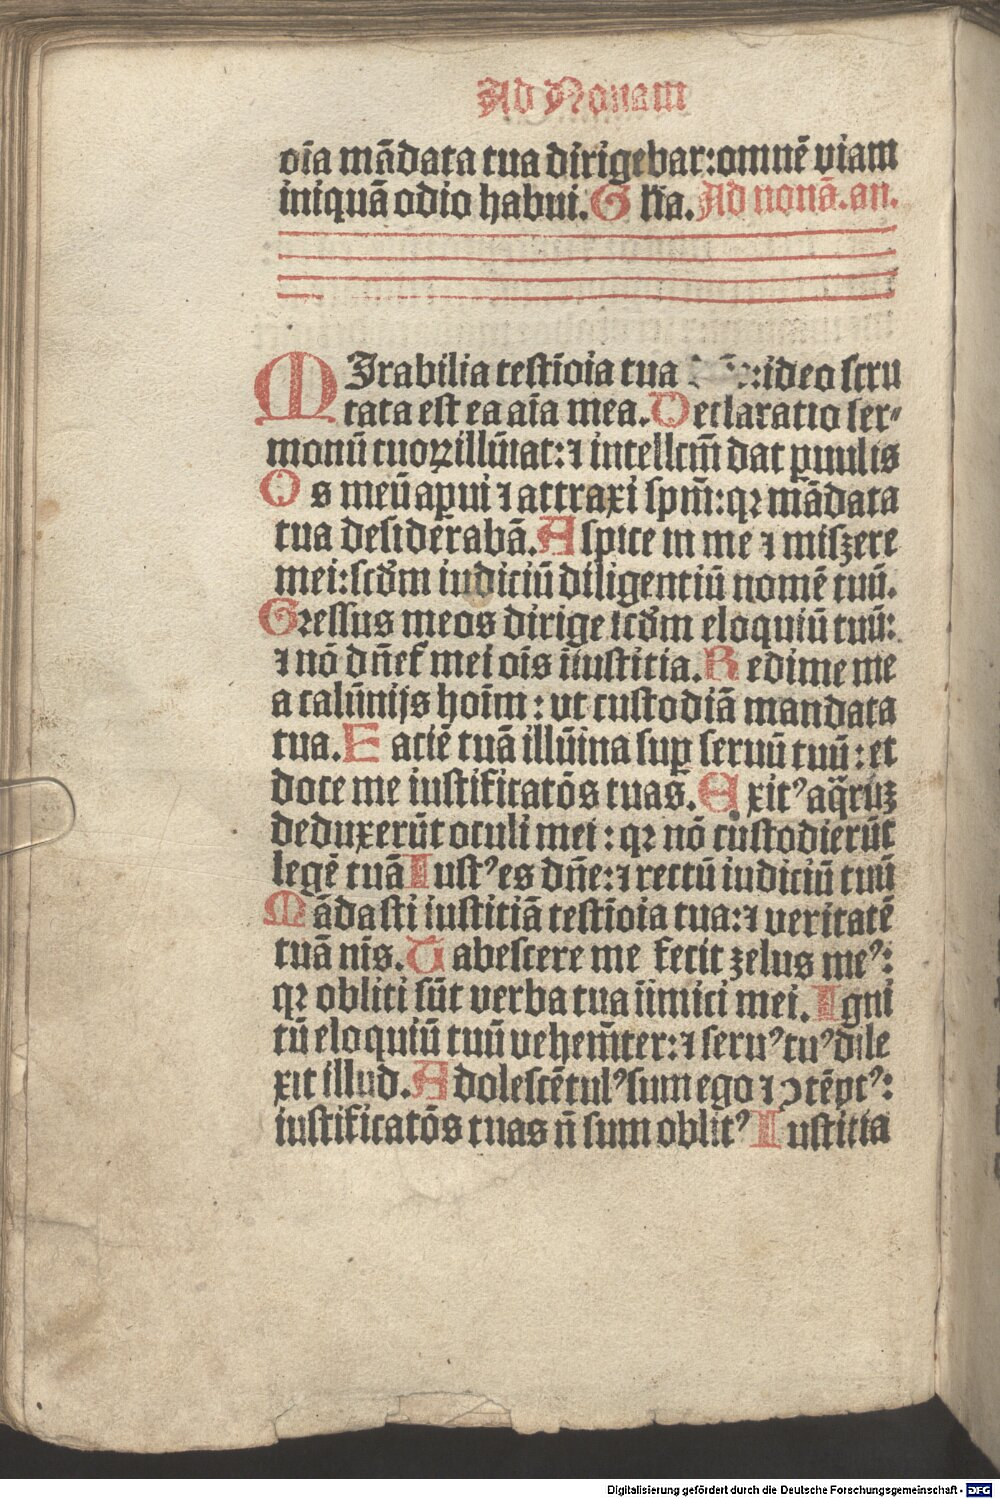 Ad Nonam
oīa mādata tua dirigebar:omnē viam
iniquā odio habui. Glīa. Ad nonā. an.
MIrabilia testīoia tua :ideo scru
tata est ea aīa mea. Declaratio ser⸗
monū tuoꝝ illūīat: ⁊ intellcm̄ dat ꝑuulis
Os meū aꝑui ⁊ attraxi spm̄: qꝛ mādata
tua desiderabā. Aspice in me ⁊ misʒere
mei: scdm iudiciū diligentiū nomē tuū.
Gressus meos dirige scdm eloquiū tuū:
⁊ nō dn̄et mei oīs iiustitia. Redime me
a calūnijs hoīm: vt custodiā mandata
tua. Faciē tuā illūina suꝑ seruū tuū: et
doce me iustificatōs tuas. Exitꝰ aq̄ruʒ
deduxerūt oculi mei: qꝛ nō custodierūt
legē tuā Iustꝰ es dn̄e: ⁊ rectū iudiciū tuū
Mādasti iustitiā testīoia tua: ⁊ veritatē
tuā nīs. Tabescere me fecit zelus meꝰ:
qꝛ obliti sūt verba tua iīmici mei. Igni
tū eloquiū tuū vehem̄ter: ⁊ seruꝰ tuꝰ dile
xit illud. Adolescētulꝰ sum ego ⁊ ↄtēptꝰ:
iustificatōs tuas n̄ sum oblitꝰ Iustitia
Digitalisierung gefördert durch die Deutsche Forschungsgemeinschaft - DFG